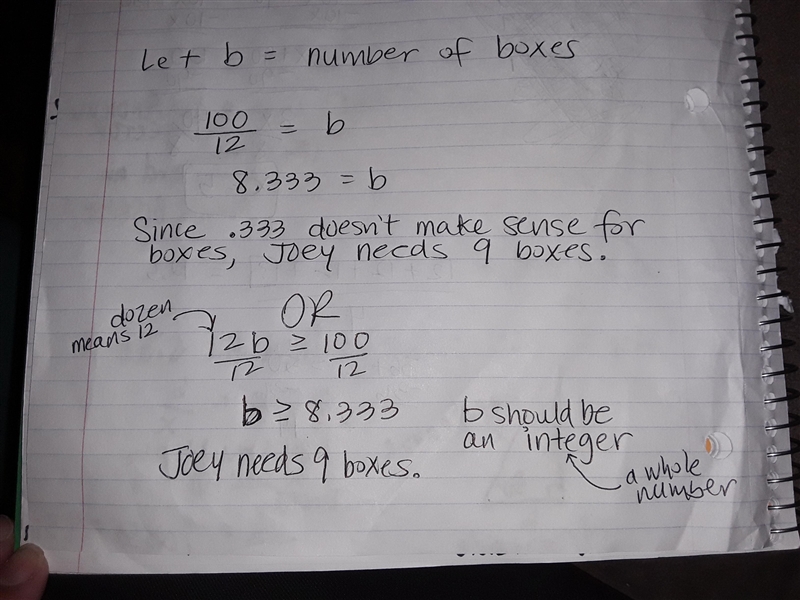 Let b = number of boxes
100/12 = b
8.333 = b
Since .333 doesn't make sense for
boxes, Joey needs 9 boxes.
OR
dozen
means 12
12b/12 ≥ 100/12
b ≥ 8.333
b should be
an integer
a whole
number
Joey needs 9 boxes.